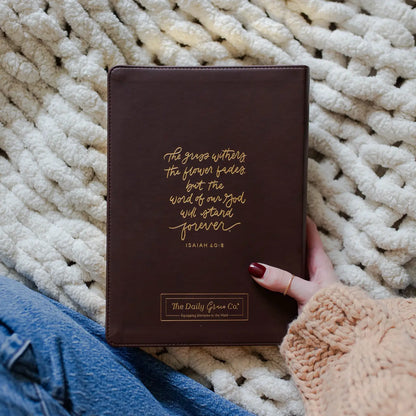 The grass withers
the flower fades
but the
word of our God
will stand
forever
ISAIAH 40:8
The Daily Grace Co.®
Equipping Disciples in the Word